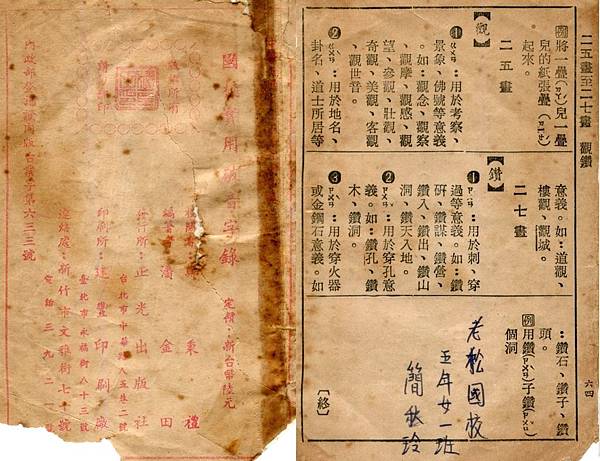 二五畫至二七畫 觀鑽
六四
例將一疊(ㄉㄧㄝˊ)兒一疊
兒的紙張疊(ㄉㄧㄝˊ)
起來。
二五畫
【觀】
❶ㄍㄨㄢ：用於考察、
景象、佛號等意義
。如：觀念、觀察
、觀摩、觀感、觀
望、參觀、壯觀、
奇觀、美觀、客觀
、觀世音。
❷ㄍㄨㄢˋ：用於地名、
卦名、道士所居等
意義。如：道觀、
樓觀、觀城。
二七畫
【鑽】
❶ㄗㄨㄢ：用於刺、穿
過等意義。如：鑽
研、鑽謀、鑽營、
鑽入、鑽出、鑽山
洞、鑽天入地。
❷ㄗㄨㄢ：用於穿孔意
義。如：鑽孔、鑽
木、鑽洞。
❸ㄗㄨㄢˋ：用於穿火器
或金鋼石意義。如
：鑽石、鑽子、鑽
頭。
例用鑽(ㄗㄨㄢˋ)子鑽(ㄗㄨㄢ)
個洞
老松國校
五年廿一班
簡秋玲
〔終〕
國 實用破音字錄
定價：新台幣陸元
秉禮
潘金田
發行所：正光出版社
台北市中華路八五 二號
印刷所：建 印刷廠
臺北市永福街八十三號
連絡處：新竹市文雅街七十號
電話三九二一
內政部登記證內版台業字第六三三號